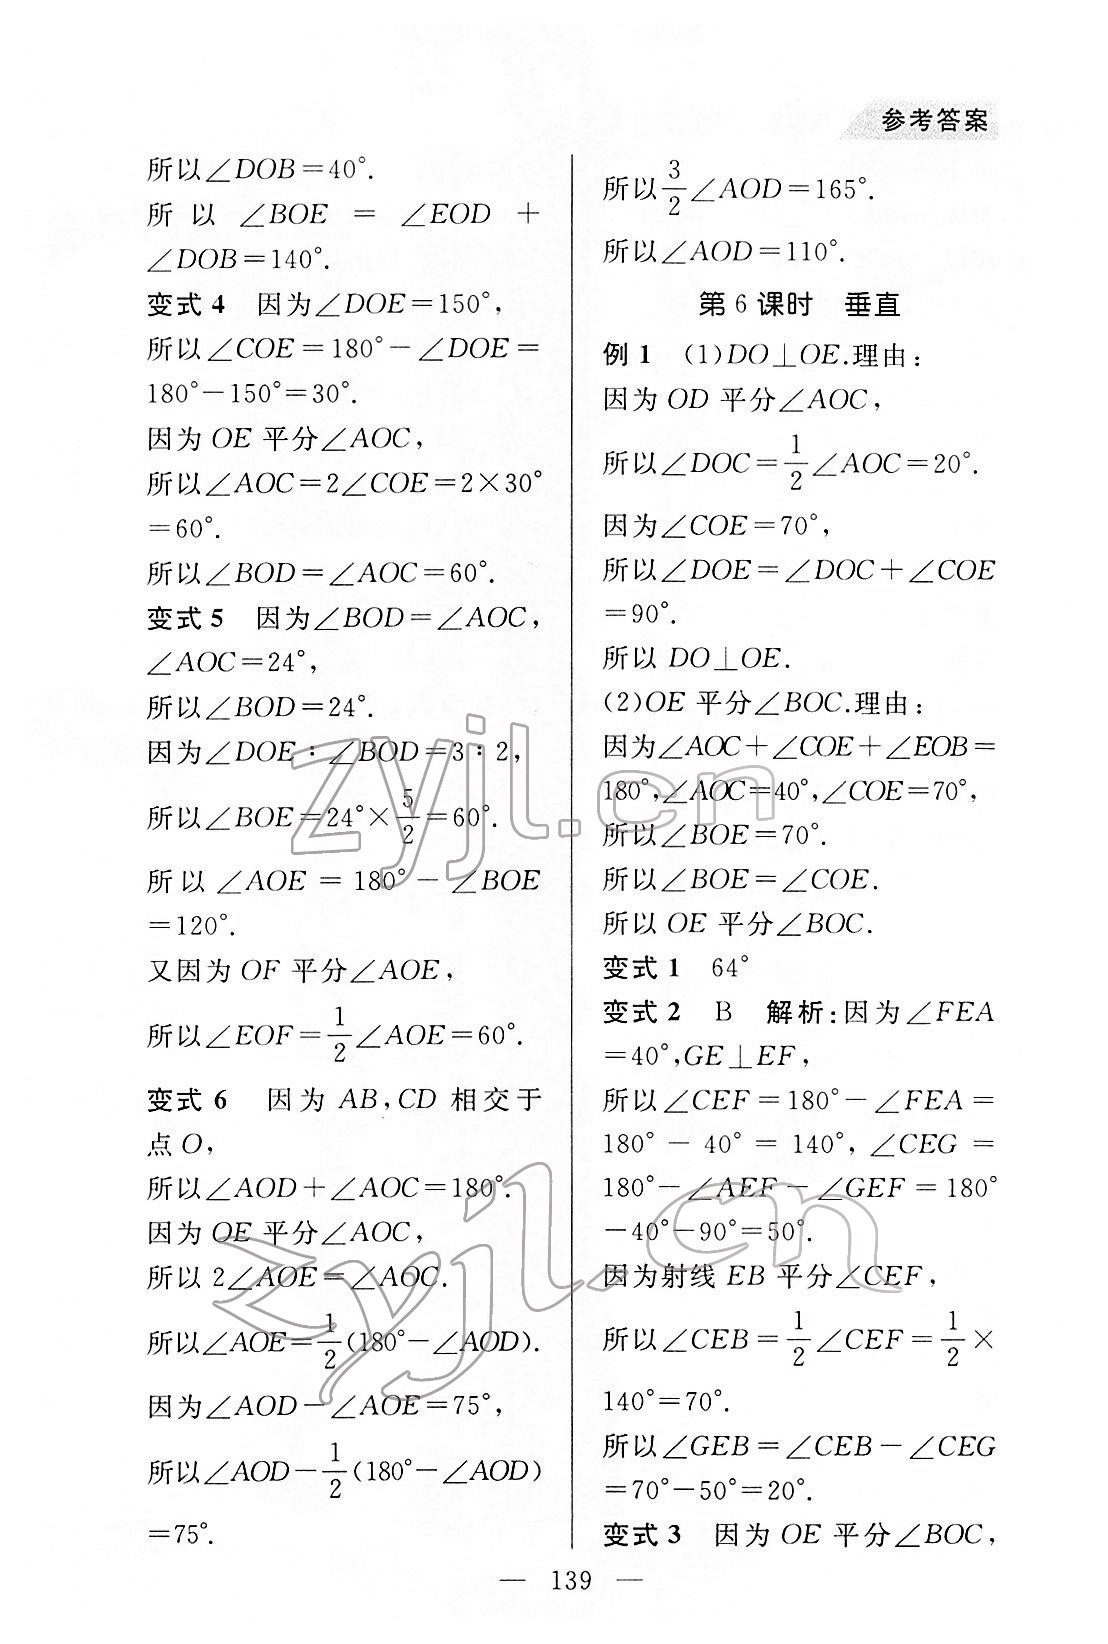 参考答案
所以∠DOB=40°.
所以 ∠BOE = ∠EOD +
∠DOB=140°.
变式4 因为∠DOE=150°,
所以∠COE=180°-∠DOE=
180°-150°=30°.
因为OE平分∠AOC,
所以∠AOC=2∠COE=2×30°
=60°.
所以∠BOD=∠AOC=60°.
变式5 因为∠BOD=∠AOC,
∠AOC=24°,
所以∠BOD=24°.
因为∠DOE∶∠BOD=3∶2,
所以∠BOE=24°×5/2=60°.
所以∠AOE=180°-∠BOE
=120°.
又因为OF平分∠AOE,
所以∠EOF=1/2∠AOE=60°.
变式6 因为AB,CD相交于
点O,
所以∠AOD+∠AOC=180°.
因为OE平分∠AOC,
所以2∠AOE=∠AOC.
所以∠AOE=1/2(180°-∠AOD).
因为∠AOD-∠AOE=75°,
所以∠AOD-1/2(180°-∠AOD)
=75°.
所以3/2∠AOD=165°.
所以∠AOD=110°.
第6课时 垂直
例1 (1)DO⊥OE.理由:
因为OD平分∠AOC,
所以∠DOC=1/2∠AOC=20°.
因为∠COE=70°,
所以∠DOE=∠DOC+∠COE
=90°.
所以DO⊥OE.
(2)OE平分∠BOC.理由:
因为∠AOC+∠COE+∠EOB=
180°,∠AOC=40°,∠COE=70°,
所以∠BOE=70°.
所以∠BOE=∠COE.
所以OE平分∠BOC.
变式1 64°
变式2 B 解析:因为∠FEA
=40°,GE⊥EF,
所以∠CEF=180°-∠FEA=
180°-40°=140°,∠CEG=
180°-∠AEF-∠GEF=180°
-40°-90°=50°.
因为射线EB平分∠CEF,
所以∠CEB=1/2∠CEF=1/2×
140°=70°.
所以∠GEB=∠CEB-∠CEG
=70°-50°=20°.
变式3 因为OE平分∠BOC,
— 139 —
zyjl.cn
zyjl.cn